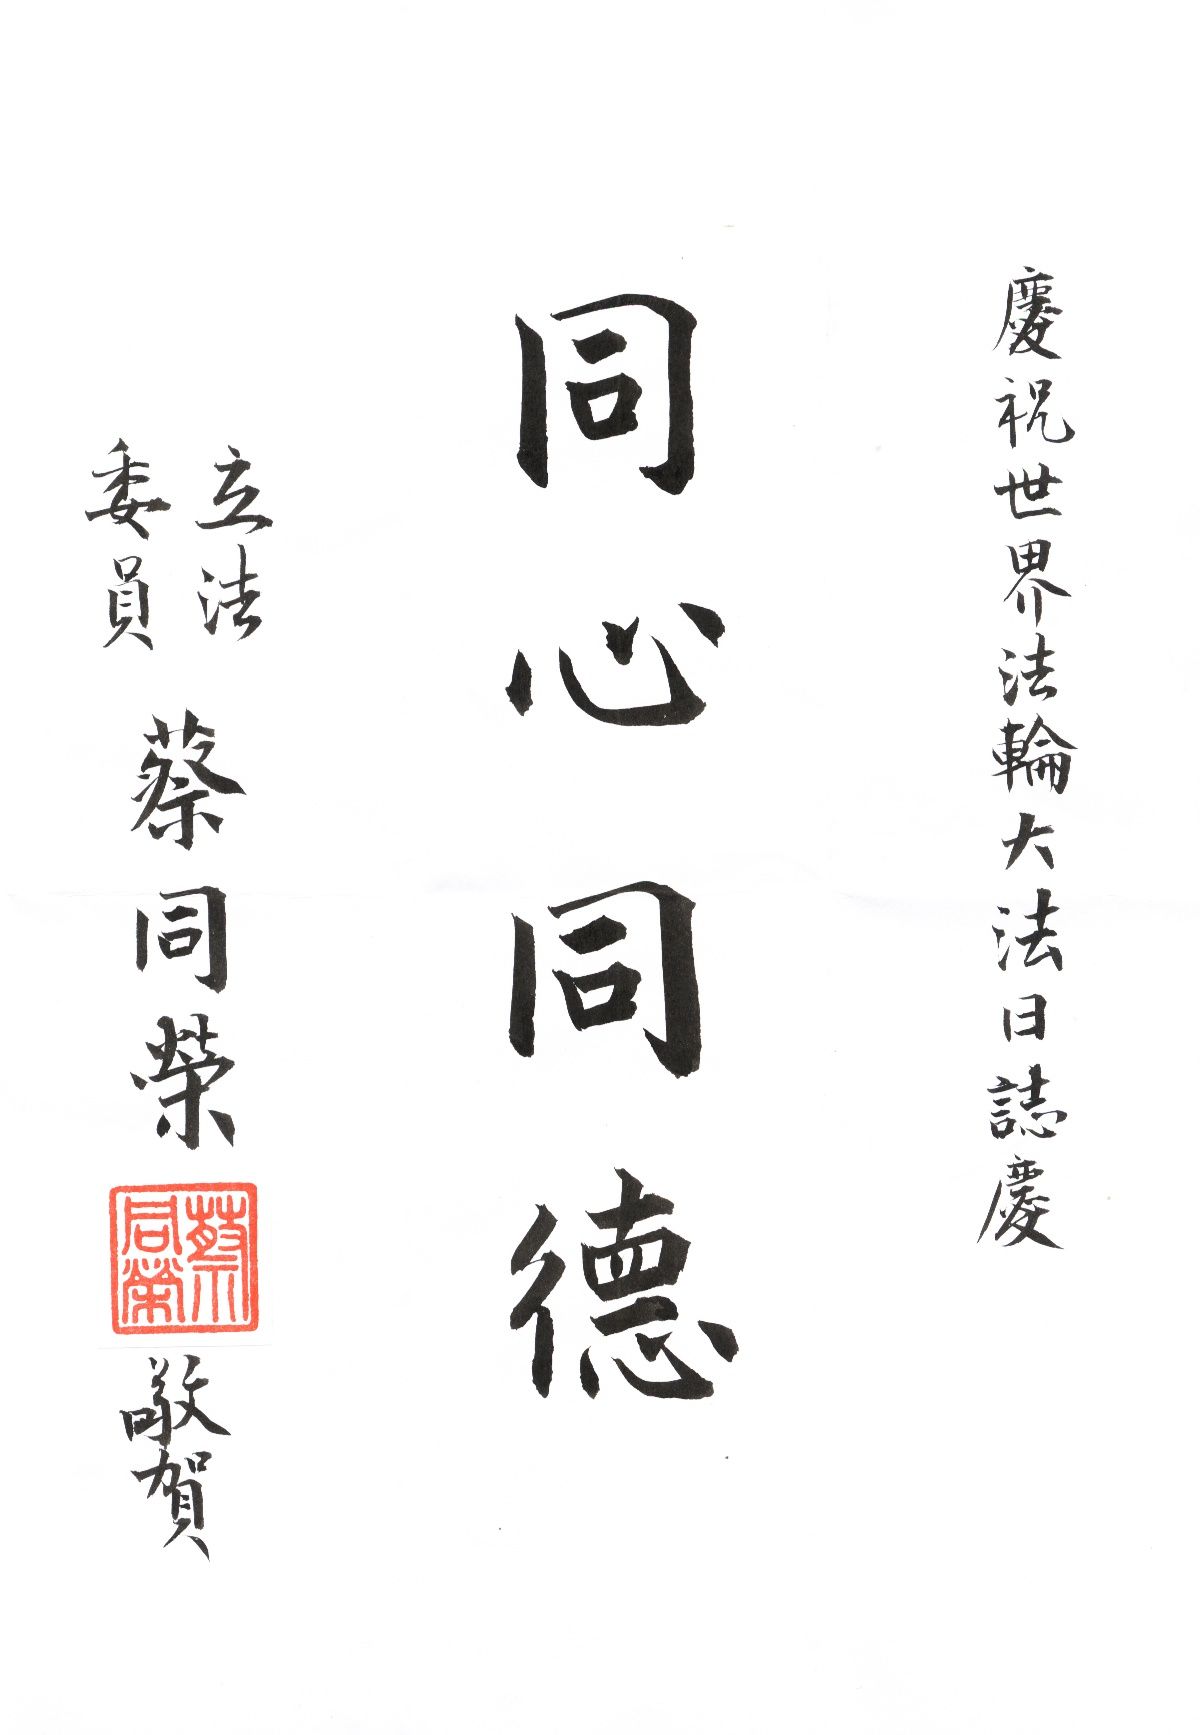 慶祝世界法輪大法日誌慶
同心同德
立法
委員
蔡同榮
蔡同榮
敬賀